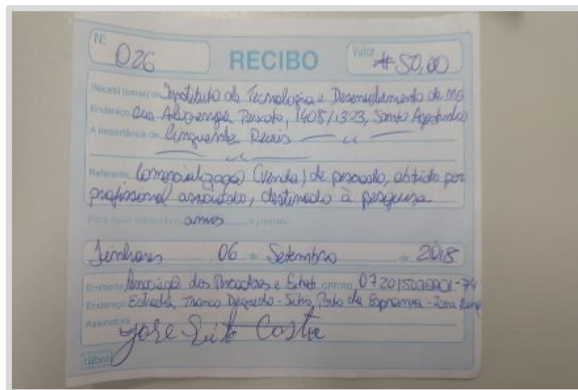 Nº 026 RECIBO Valor # 50,00
Recebi (emos) do Instituto de Tecnologia e Desenvolvimento de MG
Endereço Rua Alvarenga Peixoto, 1408/1323, Santo Agostinho
A importância de Cinquenta Reais
Referente Comercialização (venda) de pescado, obtido por
profissional associado, destinado à pesquisa
amos
Linhares 06 de Setembro de 2018
Emitente Associação dos Pescadores e CPF/RG 07
Endereço Estrada - Sítio,
Assinatura José Costa
tilibra